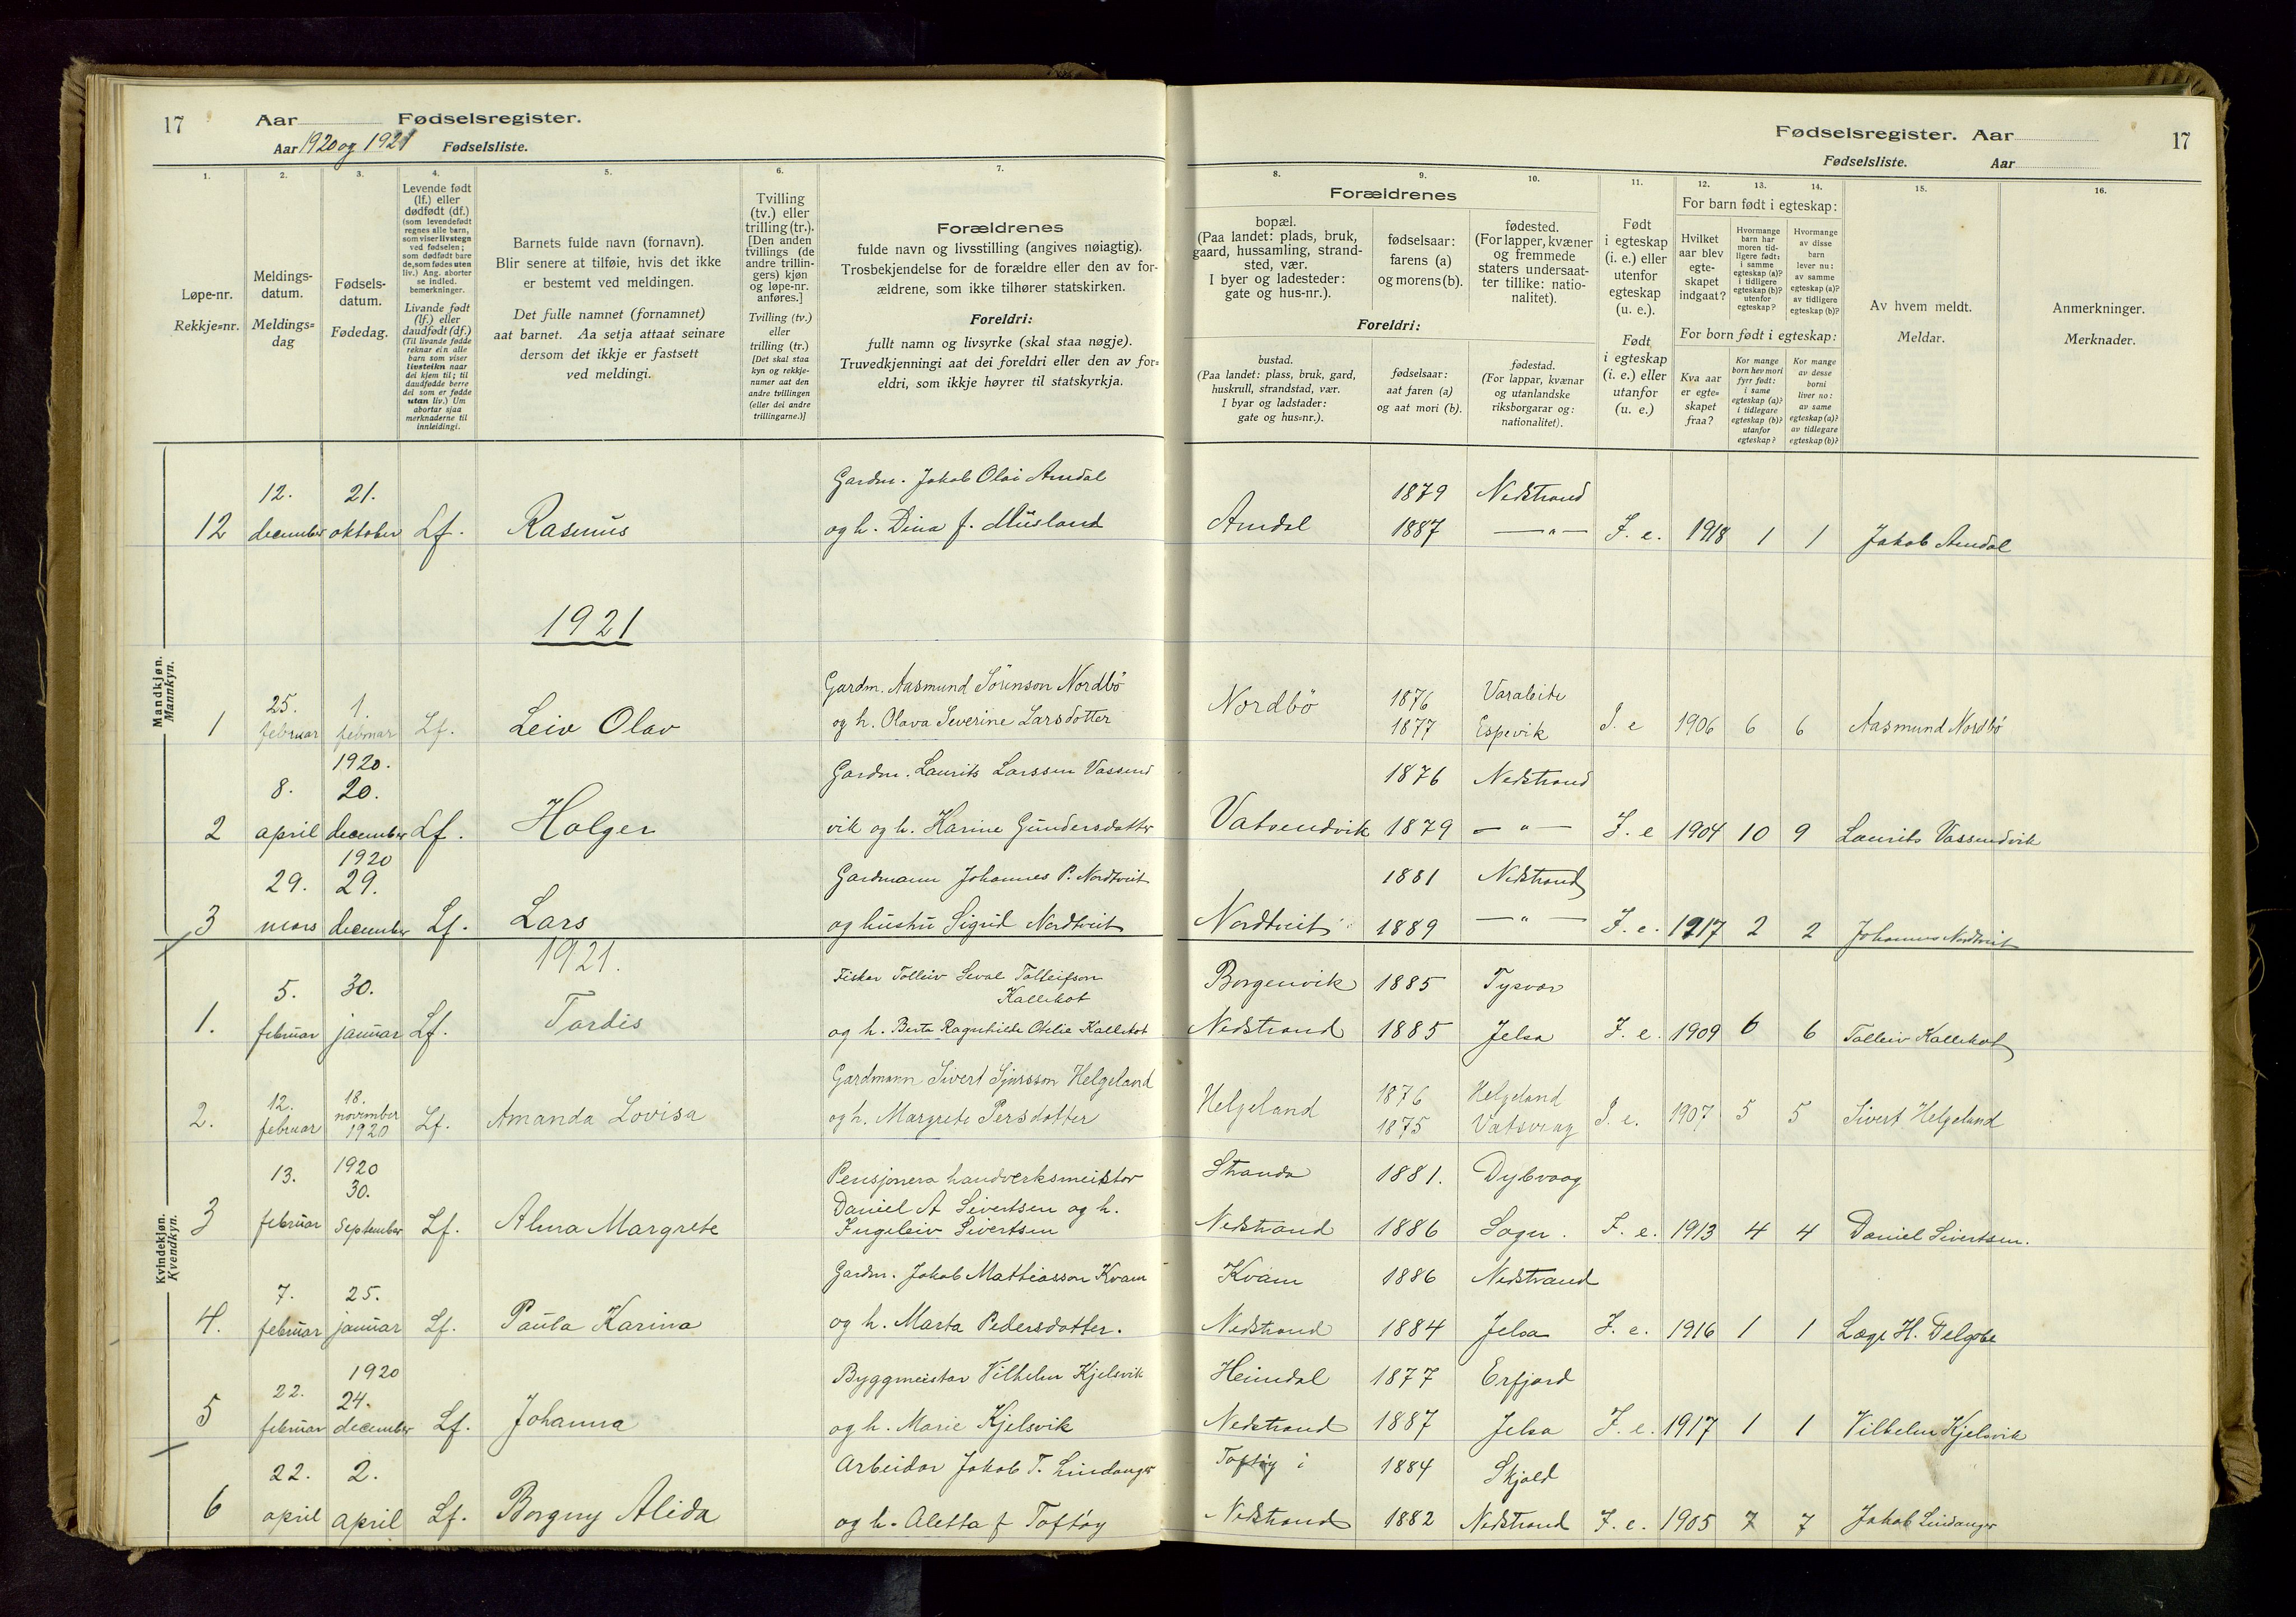 17 Aar Fødselsregister.
Aar 1920 og 1921 Fødselsliste.
Fødselsregister. Aar 17
Fødselsliste. Aar
1. 2. 3. 4. 5. 6. 7.
Løpe-nr.
Rekkje=nr.
Meldings-
datum.
Meldings=
dag
Fødsels-
datum.
Fødedag.
Levende født
(lf.) eller
dødfødt (df.)
(som levendefødt
regnes alle barn,
som viser livstegn
ved fødselen;
som dødfødt bare
de, som fødes uten
liv.) Ang. aborter
se indled.
bemerkninger.
Livande født
(lf.) eller
daudfødt (df.)
(Til livande fødde
reknar ein alle
barn som viser
livsteikn naar
dei kjem til; til
daudfødde berre
dei som er fødde
utan liv.) Um
abortar sjaa
merknaderne til
innleidingi.
Barnets fulde navn (fornavn).
Blir senere at tilføie, hvis det ikke
er bestemt ved meldingen.
Det fulle namnet (fornamnet)
aat barnet. Aa setja attaat seinare
dersom det ikkje er fastsett
ved meldingi.
Tvilling
(tv.) eller
trilling (tr.).
[Den anden
tvillings (de
andre trillin-
gers) kjøn
og løpe-nr.
anføres.]
Tvilling (tv.)
eller
trilling (tr.)
[Det skal staa
kyn og rekkje-
numer aat den
andre tvillingen
(eller dei andre
trillingarne.)]
Forældrenes
fulde navn og livsstilling (angives nøiagtig).
Trosbekjendelse for de forældre eller den av for-
ældrene, som ikke tilhører statskirken.
Foreldri:
fullt namn og livsyrke (skal staa nøgje).
Truvedkjenningi aat dei foreldri eller den av for=
eldri, som ikkje høyrer til statskyrkja.
8. 9. 10. 11. 12. 13. 14. 15. 16.
Forældrenes
bopæl.
(Paa landet: plads, bruk,
gaard, hussamling, strand-
sted, vær.
I byer og ladesteder:
gate og hus-nr.).
fødselsaar:
farens (a)
og morens (b).
fødested.
(For lapper, kvæner
og fremmede
staters undersaat-
ter tillike: natio-
nalitet).
Foreldri:
bustad.
(Paa landet: plass, bruk, gard,
huskrull, strandstad, vær.
I byar og ladstader:
gate og hus=nr.).
fødselsaar:
aat faren (a)
og aat mori (b).
fødestad.
(For lappar, kvænar
og utanlandske
riksborgarar og:
nationalitet).
Født
i egteskap
(i. e.) eller
utenfor
egteskap
(u. e.).
Født
i egteskap
(i. e.) eller
utanfor
(u. e.)
For barn født i egteskap:
Hvilket
aar blev
egte-
skapet
indgaat?
Hvormange
barn har
moren tid-
ligere født:
i samme
egteskap (a)?
i tidligere
egteskap (b)?
utenfor
egteskap?
Hvormange
av disse
barn
lever nu:
av samme
egteskap (a)?
av tidligere
egteskap (b)?
For born født i egteskap:
Kva aar
er egte=
skapet
fraa?
Kor mange
born hev mori
fyrr født:
i same
egteskap (a)?
i tidlegare
egteskap (b)?
utanfor
egteskap?
Kor mange
av desse
borni
liver no:
av same
egteskap (a)?
av tidlegare
egteskap (b)?
Av hvem meldt.
Meldar.
Anmerkninger.
Merknader.
Mandkjøn.
Mannkyn.
12. 21. Gardm. Jakob Olai Amdal 1879 Nedstrand
12 december oktober Lf. Rasmus og h. Dina f. Müsland Amdal 1887 — " — I. e. 1918 1 1 Jakob Amdal
1921
Gardm. Aasmund Sörenson Nordbö Nordbö 1876 Varaleite
25. 1.
1 februar februar Lf. Leiv Olav og h. Olava Severine Larsdotter 1877 Espevik I. e 1906 6 6 Aasmund Nordbö
1920.
8. 20. Gardm. Laurits Larssen Vassend 1876 Nedstrand
2 april december Lf. Holger vik og h. Karine Gundersdotter Vatsendvik 1879 — " — I. e 1904 10 9 Laurits Vassendvik
1920
29. 29. Gardmann Johannes P. Nordtveit 1881 Nedstrand
3 mars december Lf. Lars og hustru Sigrid Nordtveit Nordtveit 1889 — " — I. e. 1917 2 2 Johannes Nordtveit
1921.
Kvindekjøn.
Kvendkyn.
5. 30. Fiskar Tolleiv Seval Tolleifson Borgenvik 1885 Tysvær
Kallekot
1. februar januar Lf. Tordis og h. Berta Ragnhilde Otelie Kallekot Nedstrand 1885 Jelsa I. e. 1909 6 6 Tolleiv Kallekot
Gardmann Sivert Sjursson Helgeland 1876 Helgeland
12. 18.
2. februar november 1920 Lf. Amanda Lovisa og h. Margrete Persdotter Helgeland 1875 Vatsvaag I. e. 1907 5 5 Sivert Helgeland
1920
13. 30. Pensjonera handverksmeistar Stranda 1881. Dybvaag
Daniel A Sivertsen og h.
3 februar September Lf. Alma Margrete Ingeleiv Sivertsen Nedstrand 1886 Sogn. I. e. 1913 4 4 Daniel Sivertsen.
7. 25. Gardm. Jakob Mathiasson Kvam Kvam 1886 Nedstrand
4. februar januar Lf. Paula Karina og h. Marta Pedersdotter. Nedstrand 1884 Jelsa I. e. 1916 1 1 Læge H. Delgobe
1920
22. 24. Byggmeistar Vilhelm Kjelsvik Heimdal 1877 Erfjord
5 februar december Lf. Johanna og h. Marie Kjelsvik Nedstrand 1887 Jelsa I. e. 1917 1 1 Vilhelm Kjelsvik
22. 2. Arbeidar Jakob T. Lindanger Toftøy i 1884 Skjold
6 april april Lf. Borgny Alida og h. Aletta f Toftøy Nedstrand 1882 Nedstrand I. e. 1905 7 7 Jakob Lindanger